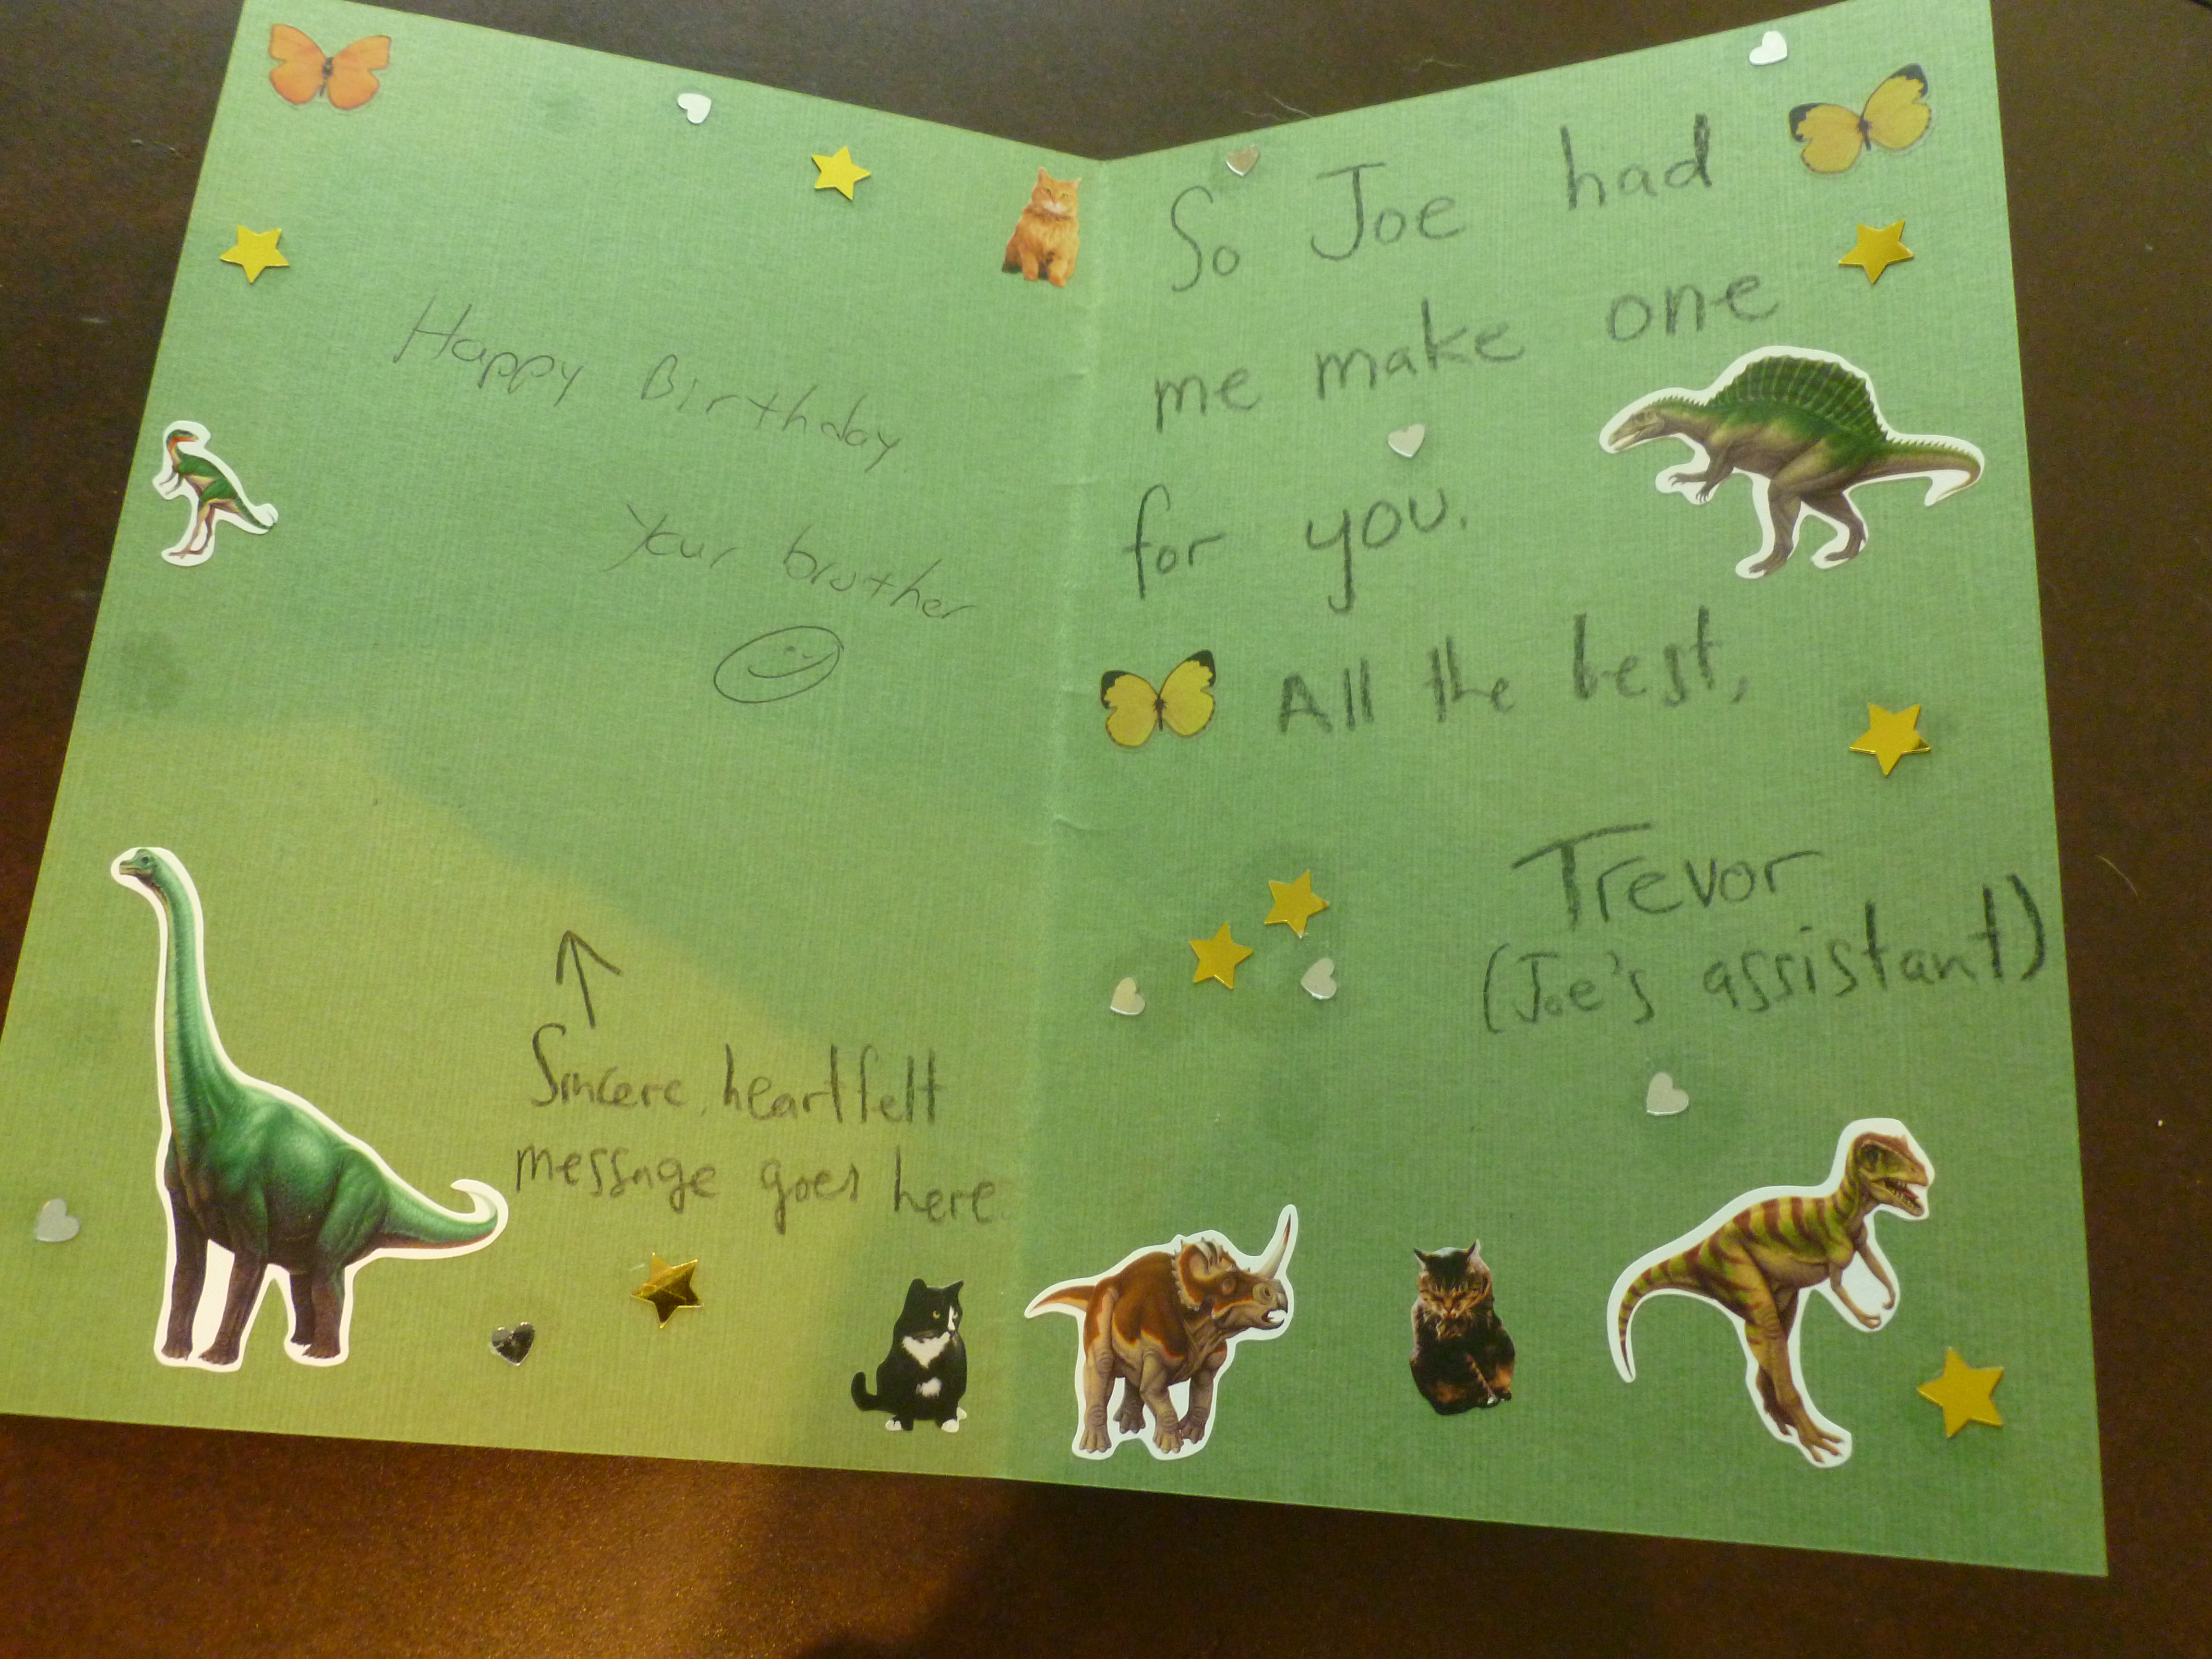 Happy Birthday
Your brother
Sincere, heartfelt
message goes here.
So Joe had
me make one
for you.
All the best,
Trevor
(Joe's assistant)